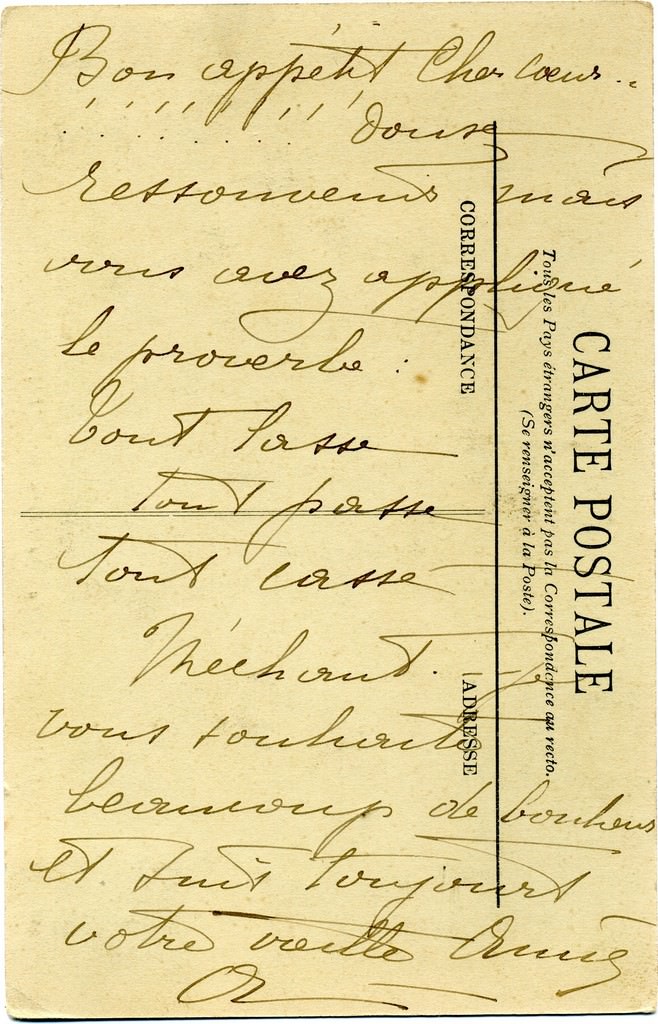 Bon appétit Cher cœur..
! ! ! ! ! ! ! Doux
ressouvenir mais
vous avez appliqué
le proverbe :
tout lasse
tout passe
tout casse
Méchant. Je
vous souhaite
beaucoup de bonheur
et suis toujours
votre vieille Amie
CARTE POSTALE
Tous les Pays étrangers n'acceptent pas la Correspondance au recto.
(Se renseigner à la Poste).
CORRESPONDANCE
ADRESSE